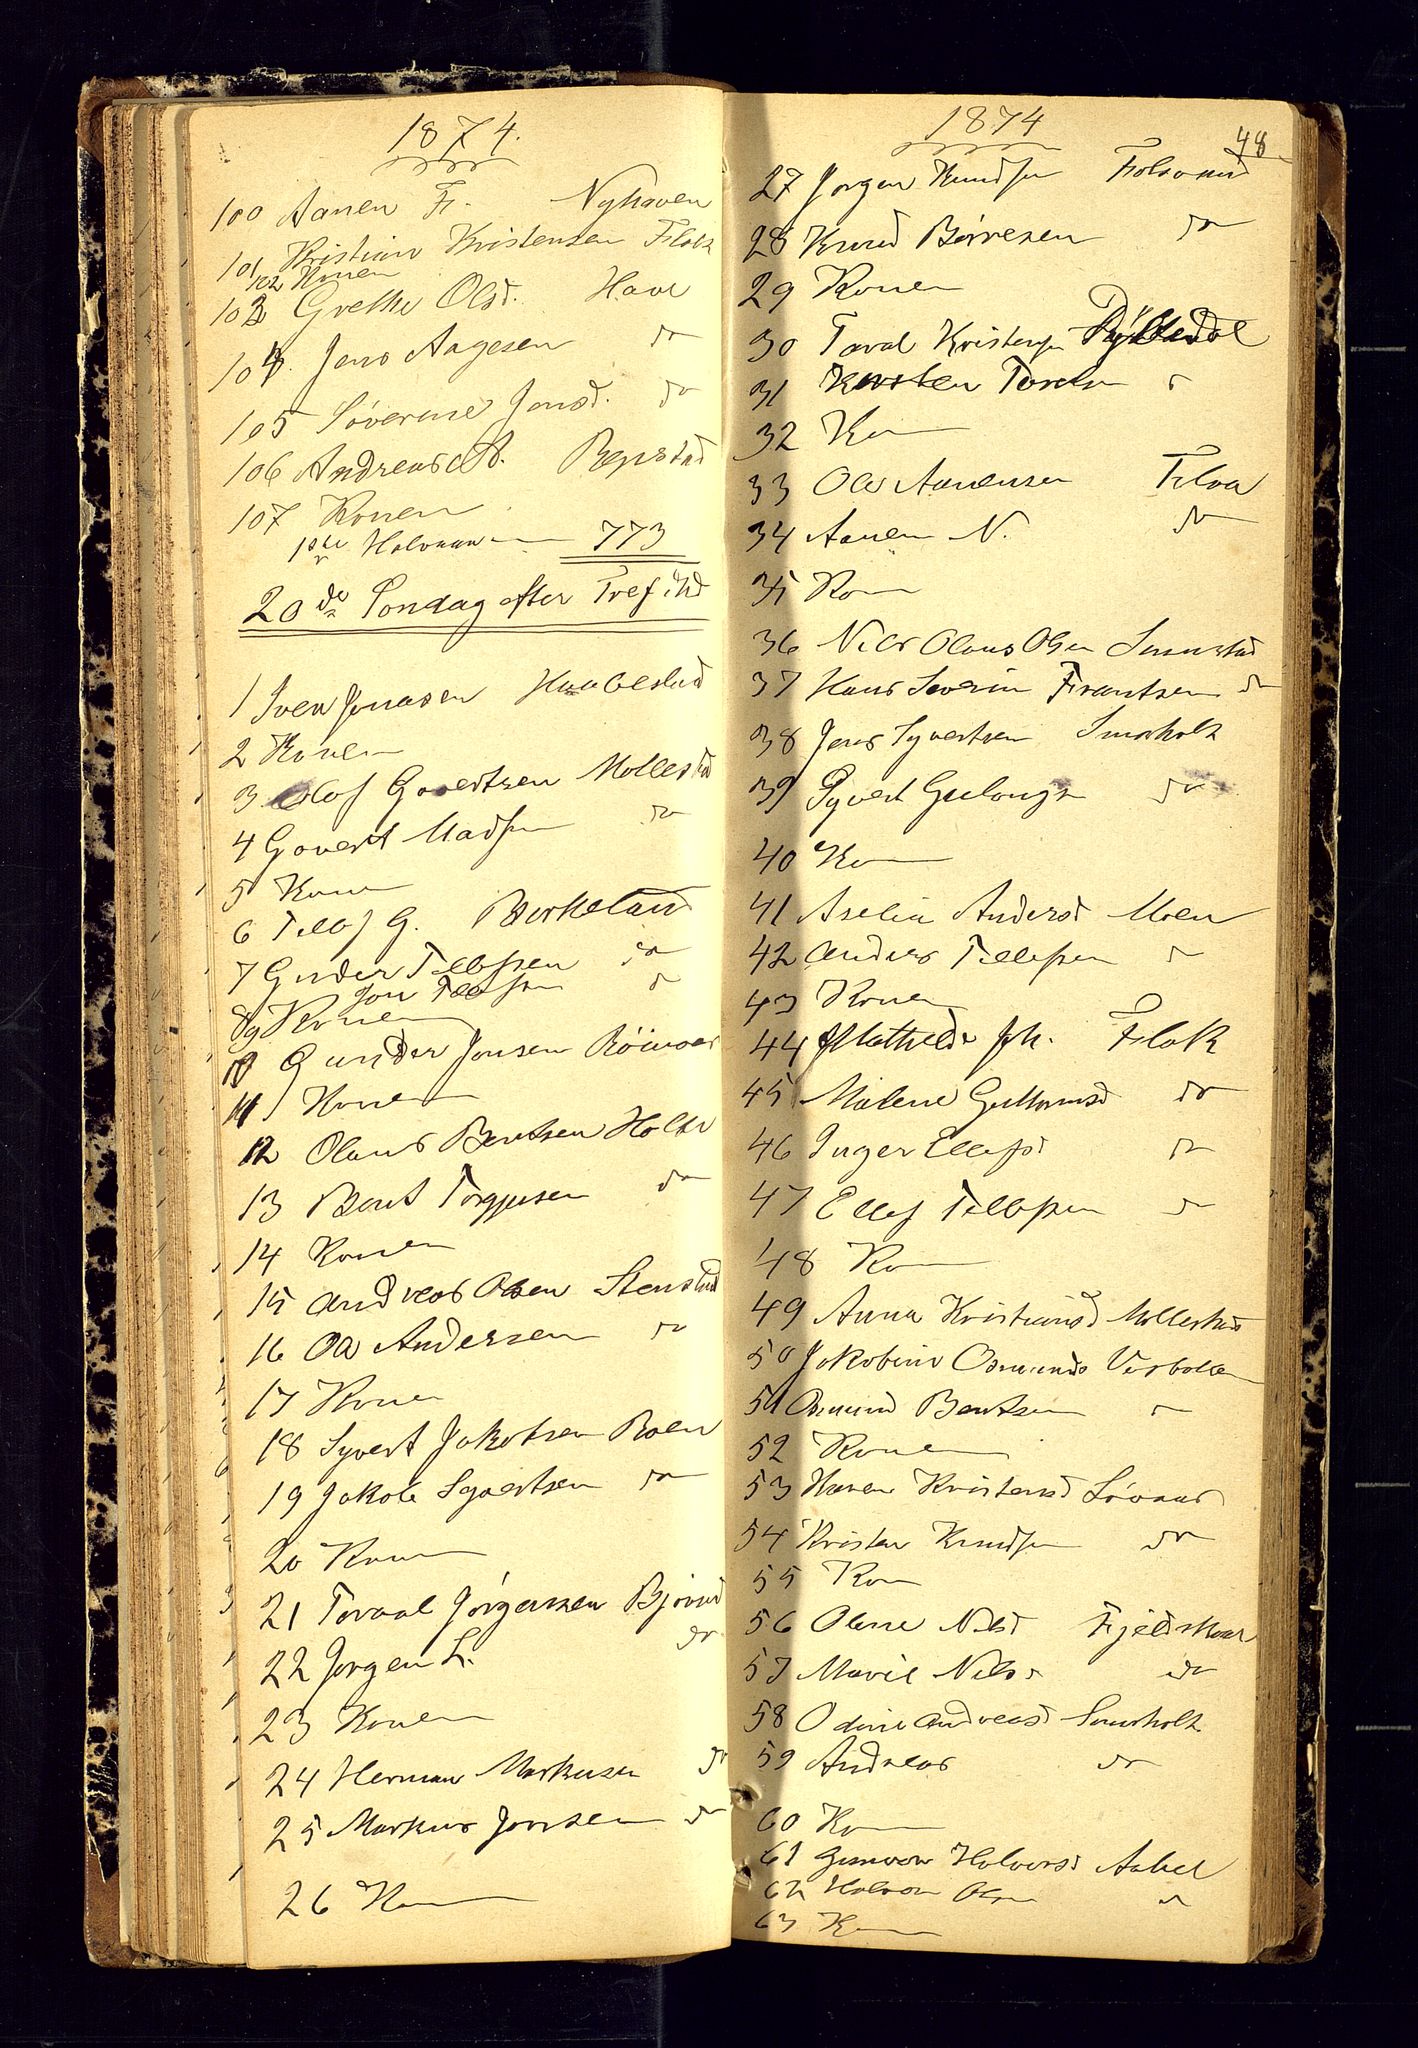 1874.
100 Aanen Fr. Nyhaven
101 Kristian Kristensen Flak
102 Konen
103 Grethe Olsd. Have
104 Jens Aagesen do
105 Søverine Jensd. do
106 Andreas A. Repstad
107 Konen
773
20de Søndag efter Tref:
1 Sven Jonasen Haabestad
2 Konen
3 Olaf Govertsen Mollestad
4 Govert Madsen do
5 Konen
6 Tellef G. Birkeland
7 Gunder Tellefsen do
8 Jon Tellefsen do
9 Konen
10 Gunder Jensen
11 Konen
12 Olaus Bentsen Holte
13 Bent Torgjusen do
14 Konen
15 Andreas Olsen Stenstad
16 Ole Andersen do
17 Konen
18 Syvert Jakobsen Roen
19 Jakob Syvertsen do
20 Konen
21 Toraal Jørgensen
22 Jørgen L. do
23 Konen
24 Herman Markusen do
25 Markus Jensen do
26 Konen
1874
48
27 Jørgen Knudsen
28 Knud Børresen do
29 Konen
30 Taral Kristensen
31 Kristen Torelsen do
32 Konen
33 Ole Aanensen
34 Aanen N. do
35 Konen
36 Nils Olaus Olsen
37 Hans Severin Frantsen do
38 Jens Syvertsen Smorholt
39 Syvert do
40 Konen
41 Aselin Andersd Moen
42 Anders Tellefsen do
43 Konen
44 Mathilde Joh. Flak
45 Malene Guttormsd do
46 Inger Ellefsd do
47 Ellef Tellefsen do
48 Konen
49 Anna Kristiansd Mollestad
50 Jakobine Osmundsd
51 Osmund Bentsen do
52 Konen
53 Karen Kristensd
54 Kristen Knudsen do
55 Konen
56 Olene Nilsd Fjeldskaar
57 Marie Nilsd do
58 Odine Andreasd Smorholt
59 Andreas do
60 Konen
61 Gunvor Halvorsd
62 Halvor Olsen do
63 Konen